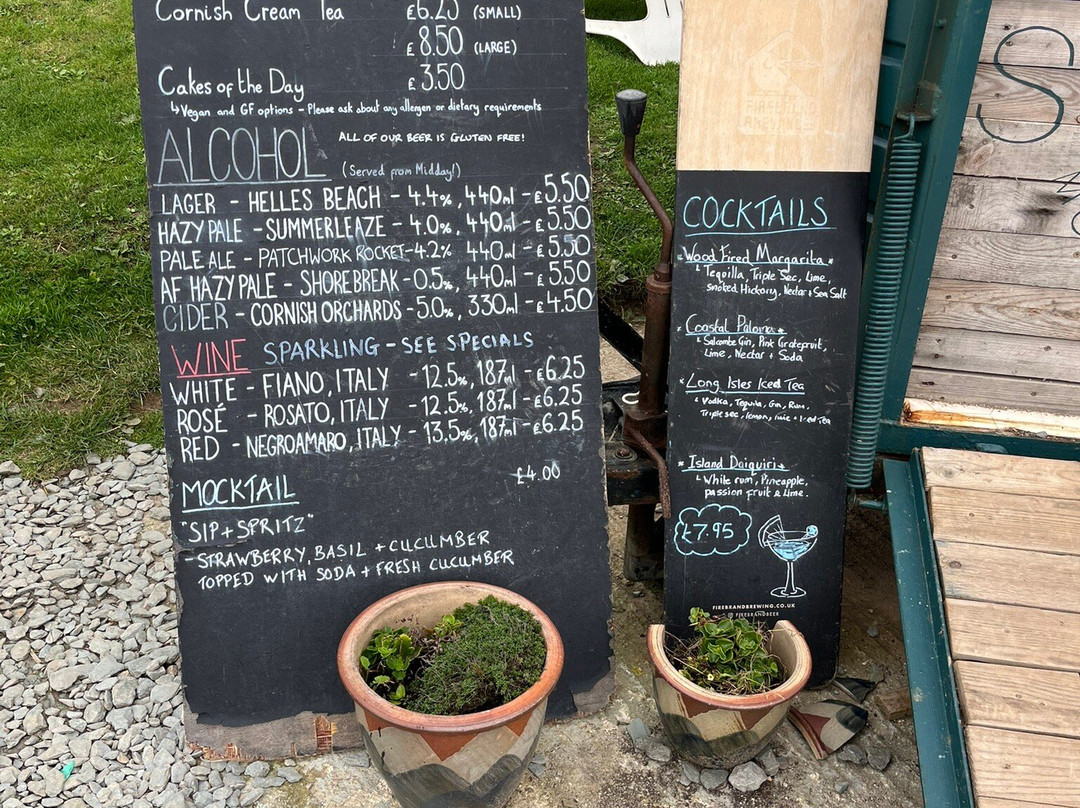 Cornish Cream Tea £6.25 (SMALL)
£8.50 (LARGE)
Cakes of the Day £3.50
↳ Vegan and GF options - Please ask about any allergen or dietary requirements
ALCOHOL ALL OF OUR BEER IS GLUTEN FREE!
(Served from Midday!)
LAGER - HELLES BEACH - 4.4%, 440ml - £5.50
HAZY PALE - SUMMERLEAZE - 4.0%, 440ml - £5.50
PALE ALE - PATCHWORK ROCKET - 4.2% 440ml - £5.50
AF HAZY PALE - SHOREBREAK - 0.5%, 440ml - £5.50
CIDER - CORNISH ORCHARDS - 5.0%, 330ml - £4.50
WINE SPARKLING - SEE SPECIALS
WHITE - FIANO, ITALY - 12.5%, 187ml - £6.25
ROSÉ - ROSATO, ITALY - 12.5%, 187ml - £6.25
RED - NEGROAMARO, ITALY - 13.5%, 187ml - £6.25
MOCKTAIL £4.00
"SIP + SPRITZ"
- STRAWBERRY, BASIL + CUCUMBER
TOPPED WITH SODA + FRESH CUCUMBER
COCKTAILS
Wood Fired Margarita
↳ Tequilla, Triple Sec, Lime,
Smoked Hickory, Nectar + Sea Salt
Coastal Paloma
↳ Salcombe Gin, Pink Gratefruit,
Lime, Nectar + Soda
Long Isles Iced Tea
↳ Vodka, Tequila, Gin, Rum,
Triple sec, lemon, lime + Iced Tea
Island Daiquiri
↳ White rum, Pineapple,
passion fruit & Lime.
£7.95
FIREBRANDBREWING.CO.UK
FIREBRANDBEER
S